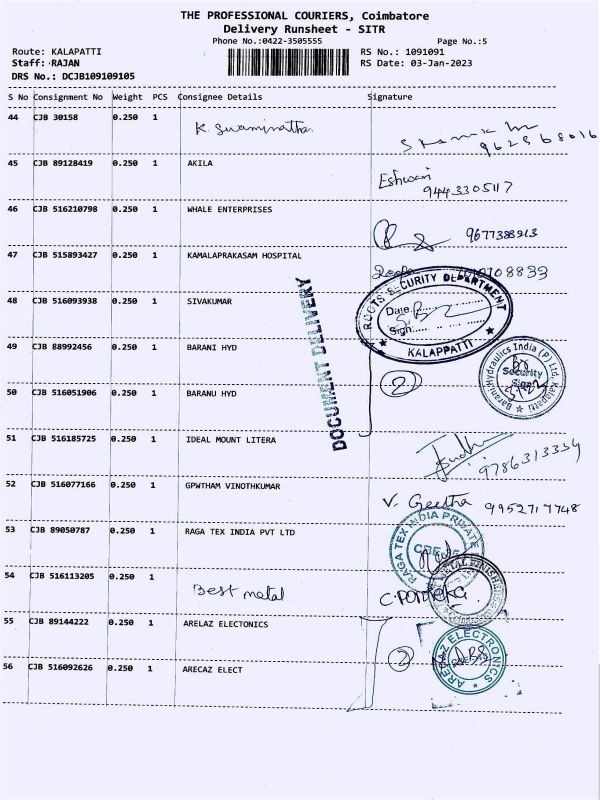 THE PROFESSIONAL COURIERS, Coimbatore
Delivery Runsheet - SITR
Phone No.:0422-3505555 Page No.:5
Route: KALAPATTI RS No.: 1091091
Staff: RAJAN RS Date: 03-Jan-2023
DRS No.: DCJB109109105
S No Consignment No Weight PCS Consignee Details Signature
44 CJB 30158 0.250 1 K. Swaminathan
9625568016
45 CJB 89128419 0.250 1 AKILA Eshwari
9443305117
46 CJB 516210798 0.250 1 WHALE ENTERPRISES
9677388913
47 CJB 515893427 0.250 1 KAMALAPRAKASAM HOSPITAL
48 CJB 516093938 0.250 1 SIVAKUMAR
ROOTS SECURITY DEPARTMENT
Date
Sign
KALAPPATTI
DOCUMENT DELIVERY
49 CJB 88992456 0.250 1 BARANI HYD
2
Barani Hydraulics India (P) Ltd, Kalapatti
Security
Sign
50 CJB 516051906 0.250 1 BARANU HYD
51 CJB 516185725 1 IDEAL MOUNT LITERA
9786313334
52 CJB 516077166 0.250 1 GPWTHAM VINOTHKUMAR
V. Geetha 9952717748
53 CJB 89050787 0.250 1 RAGA TEX INDIA PVT LTD
RAGA TEX INDIA PRIVATE
54 CJB 516113205 0.250 1 Best metal
55 CJB 89144222 0.250 1 ARELAZ ELECTONICS
2
ARECAZ ELECTRONICS
56 CJB 516092626 0.250 1 ARECAZ ELECT